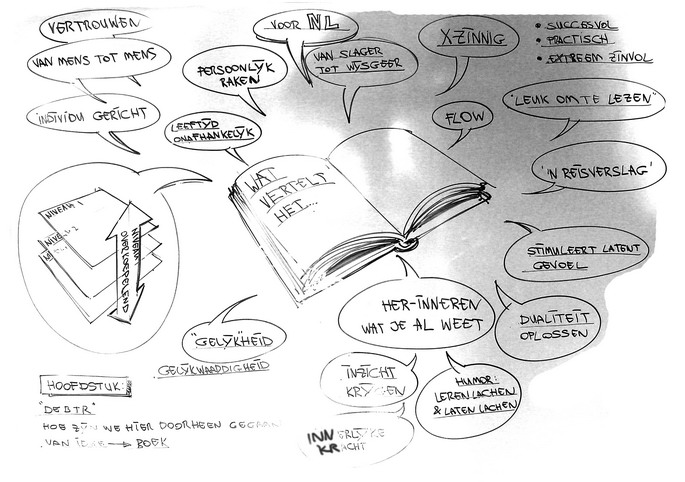 VERTROUWEN
VAN MENS TOT MENS
INDIVIDU GERICHT
PERSOONLIJK
RAKEN
LEEFTIJD
ONAFHANKELIJK
VOOR NL
VAN SLAGER
TOT WIJSGEER
X-ZINNIG
FLOW
• SUCCESVOL
• PRACTISCH
• EXTREEM ZINVOL
"LEUK OM TE LEZEN"
'N REISVERSLAG'
WAT
VERTELT
HET...
NIVEAU 1
NIVEAU 2
NIVEAU
OVERKOEPELEND
STIMULEERT LATENT
GEVOEL
HER-INNEREN
WAT JE AL WEET
DUALITEIT
OPLOSSEN
"GELIJK"HEID
GELIJKWAARDIGHEID
INZICHT
KRIJGEN
HUMOR:
LEREN LACHEN
& LATEN LACHEN
INNERLIJKE
KRACHT
HOOFDSTUK:
HOE ZIJN WE HIER DOORHEEN
VAN IDEE → BOEK